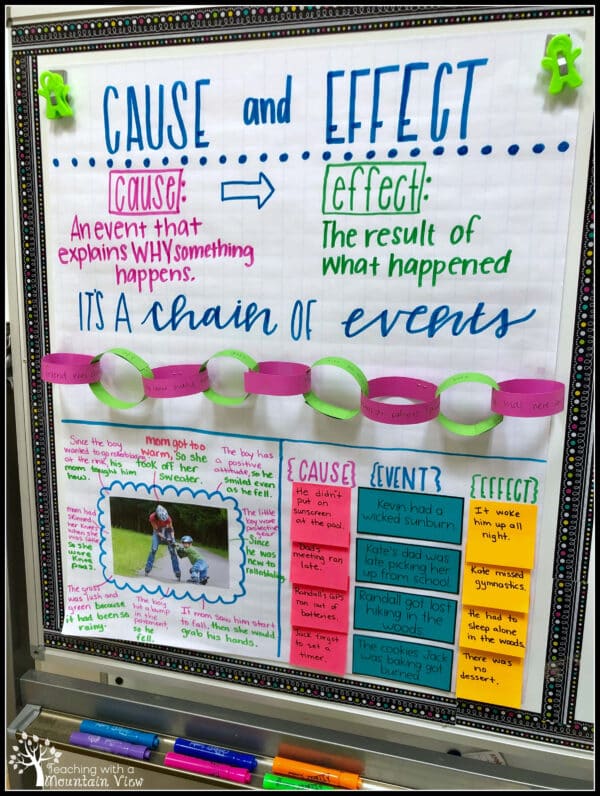 CAUSE and EFFECT
cause:
An event that
explains WHY something
happens.
effect:
The result of
what happened
IT'S A chain OF events
Since the boy
wanted to go rollerblading
at the rink, his
mom taught him
how.
mom got too
warm, so she
took off her
sweater.
The boy has
a positive
attitude, so he
smiled even
as he fell.
mom had
skinned
her knees
when she
was little
so she
wore
knee
pads.
The little
boy wore
protective
gear
Since
he was
new to
rollerblading.
The grass
was lush and
green because
it had been so
rainy.
The boy
hit a bump
in the
pavement
so he
fell.
If mom saw him start
to fall, then she would
grab his hands.
{CAUSE}
{EVENT}
{EFFECT}
He didn't
put on
sunscreen
at the pool.
Kevin had a
wicked sunburn.
It woke
him up all
night.
Dad's
meeting ran
late.
Kate's dad was
late picking her
up from school
Kate missed
gymnastics.
Randall's GPS
ran out of
batteries.
Randall got lost
hiking in the
woods
He had to
sleep alone
in the woods.
Jack forgot
to set a
timer.
The cookies Jack
was baking got
burned.
There was
no
dessert.
Teaching with a
Mountain View